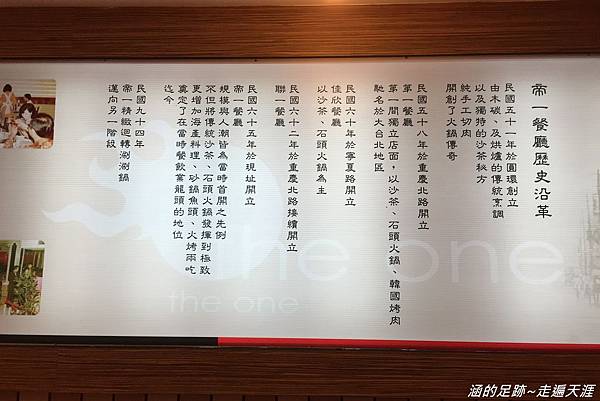 帝一餐廳歷史沿革
民國五十一年於圓環創立
由木碳、及烘爐的傳統烹調
以及獨特的沙茶秘方
純手工切肉
開創了火鍋傳奇
民國五十八年於重慶北路開立
第一餐廳
第一間獨立店面，以沙茶、石頭火鍋、韓國烤肉
馳名於大台北地區
民國六十年於寧夏路開立
佳欣餐廳
以沙茶、石頭火鍋為主
民國六十二年於重慶北路接續開立
聯一餐廳
民國六十五年於現址開立
帝一餐廳
規模與人潮皆為當時首開之先例
不但將傳統沙茶、石頭火鍋發揮到極致
更增加海產料理、砂鍋魚頭、火烤兩吃
奠定了在當時餐飲業龍頭的地位
迄今
民國九十四年
帝一精緻迴轉涮涮鍋
邁向另一階段
The one
the one
涵的足跡~走遍天涯